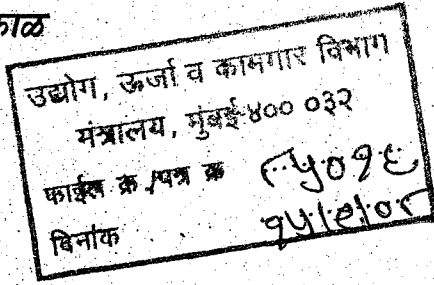 काळ
उद्योग, ऊर्जा व कामगार विभाग
मंत्रालय, मुंबई-४०० ०३२
फाईल क्र./पत्र क्र
दिनांक १५/७/०८